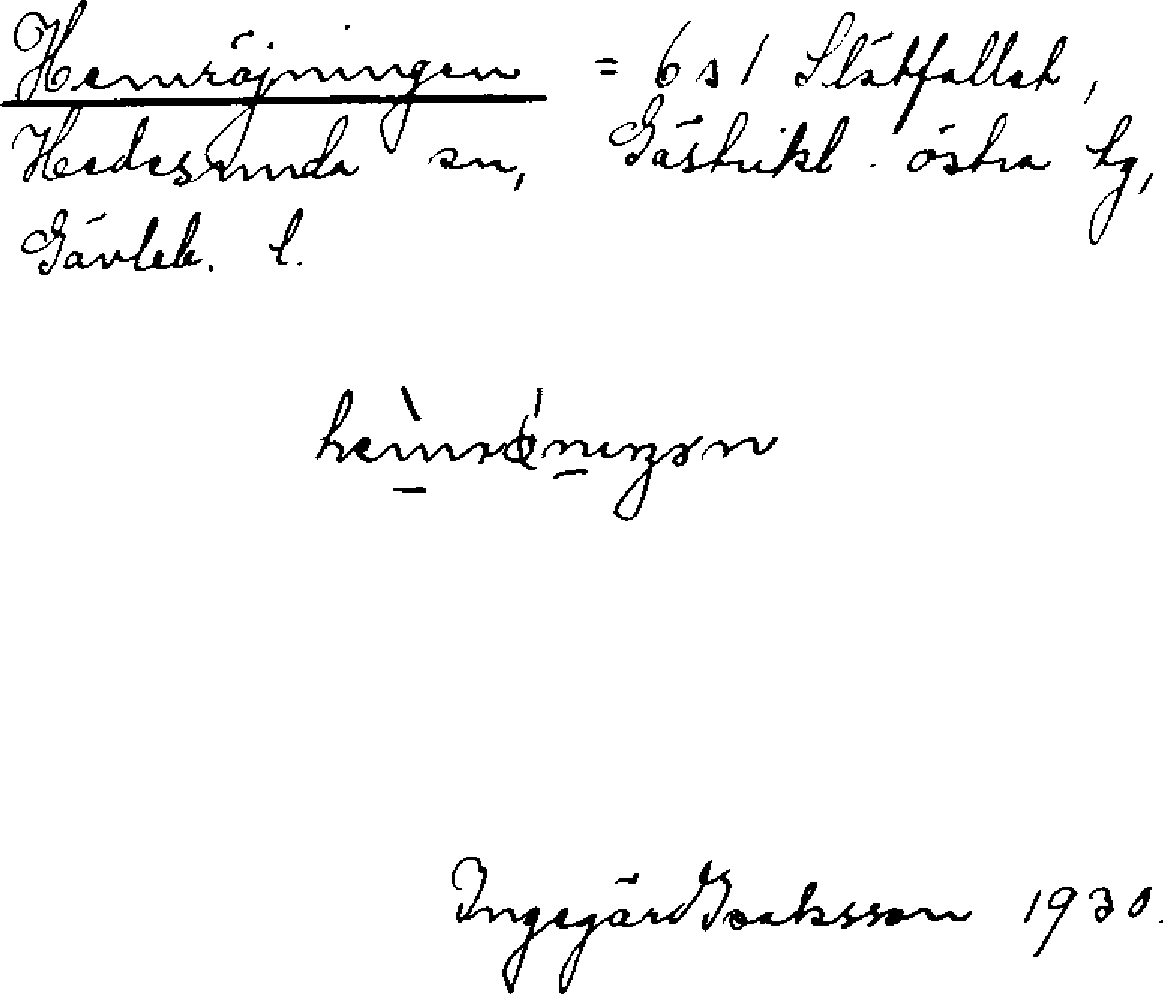 Hemröjningen = 6 s 1 Slätfallet,
Hedesunda sn, Gästrikl. östra hg,
Gävleb. l.
Ingegärd Isaksson 1930.